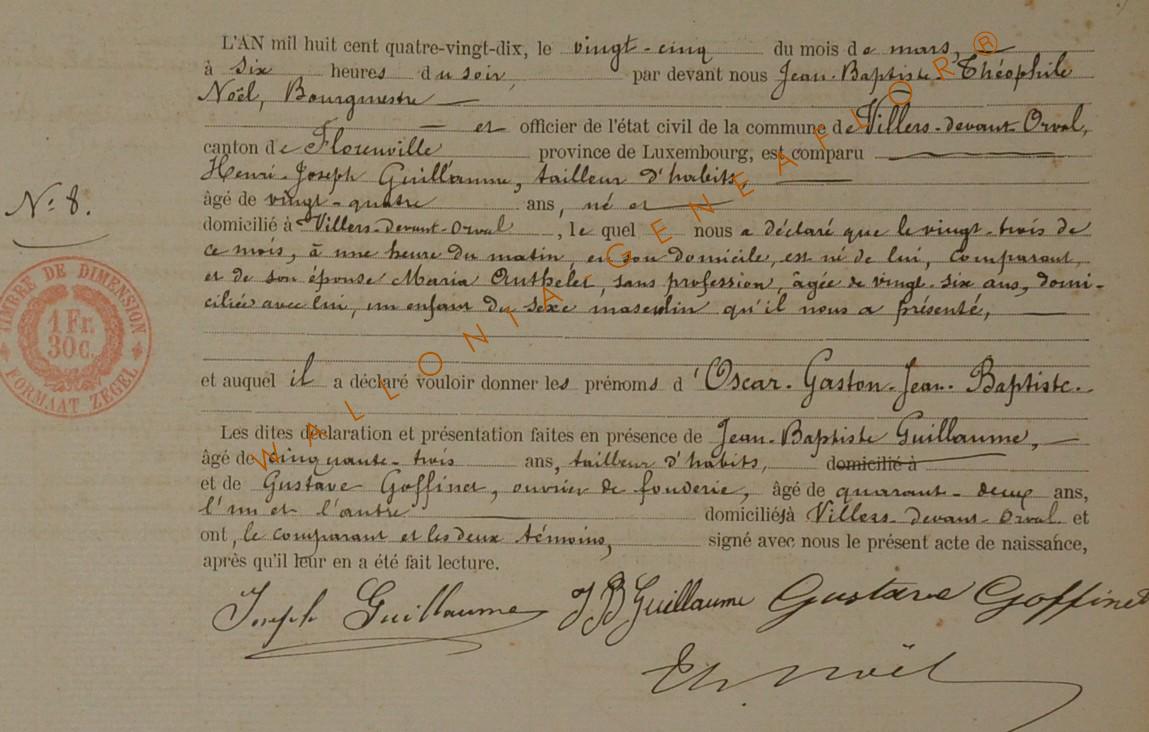 L'AN mil huit cent quatre-vingt-dix, le vingt-cinq du mois de mars,
à six heures du soir, par devant nous Jean-Baptiste-Théophile
Noël, Bourgmestre
et officier de l'état civil de la commune de Villers-devant-Orval,
canton de Florenville province de Luxembourg, est comparu
Henri-Joseph Guillaume, tailleur d'habits,
N: 8.
âgé de vingt-quatre ans, né et
domicilié à Villers-devant-Orval, lequel nous a déclaré que le vingt-trois de
ce mois, à une heure du matin, en son domicile, est né de lui, comparant,
et de son épouse Maria Outhelet, sans profession, âgée de vingt-six ans, domi-
ciliée avec lui, un enfant du sexe masculin qu'il nous a présenté,
et auquel il a déclaré vouloir donner les prénoms d'Oscar-Gaston-Jean-Baptiste.
Les dites déclaration et présentation faites en présence de Jean-Baptiste Guillaume,
âgé de cinquante-trois ans, tailleur d'habits, domicilié à
et de Gustave Goffinet, ouvrier de fonderie, âgé de quarant-deux ans,
l'un et l'autre domiciliés à Villers-devant-Orval et
ont, le comparant et les deux témoins, signé avec nous le présent acte de naissance,
après qu'il leur en a été fait lecture.
Joseph Guillaume JB Guillaume Gustave Goffinet
Th Noël
TIMBRE DE DIMENSION
1 Fr.
30c.
FORMAAT ZÉGEL
WALLONIA-GENEAFLOR®